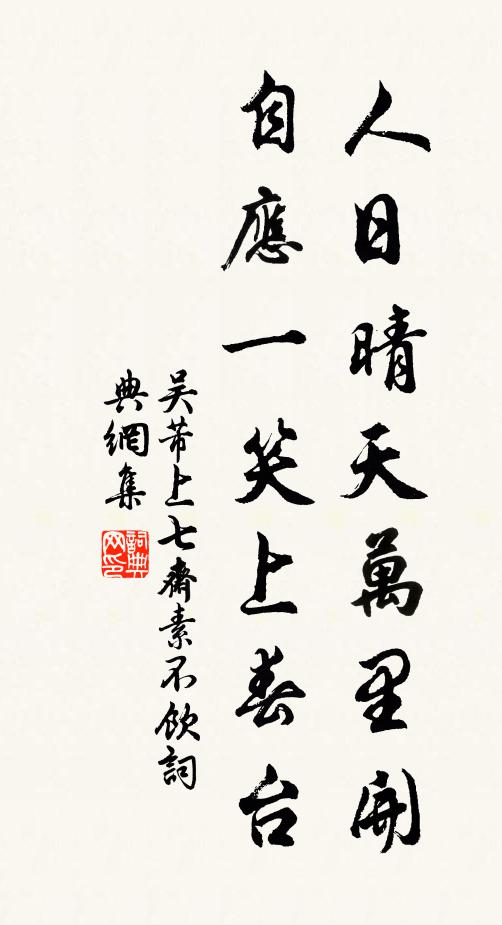 人日晴天萬里開
自應一笑上春台
吴芾上七齋素不飲詞
典網集
詞典
网印